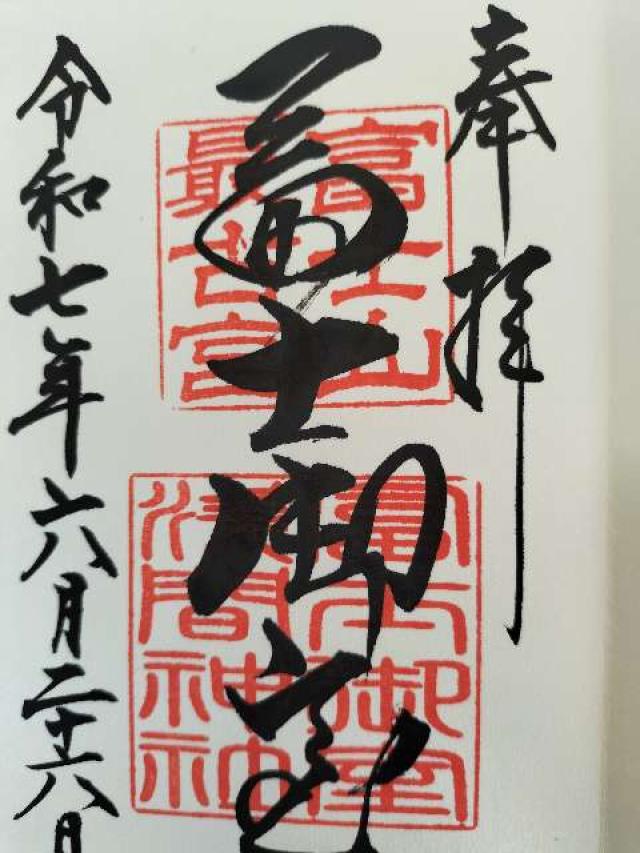 奉拝
富士御室
富士山
最古宮
富士御室
浅間神社
令和七年六月二十六日